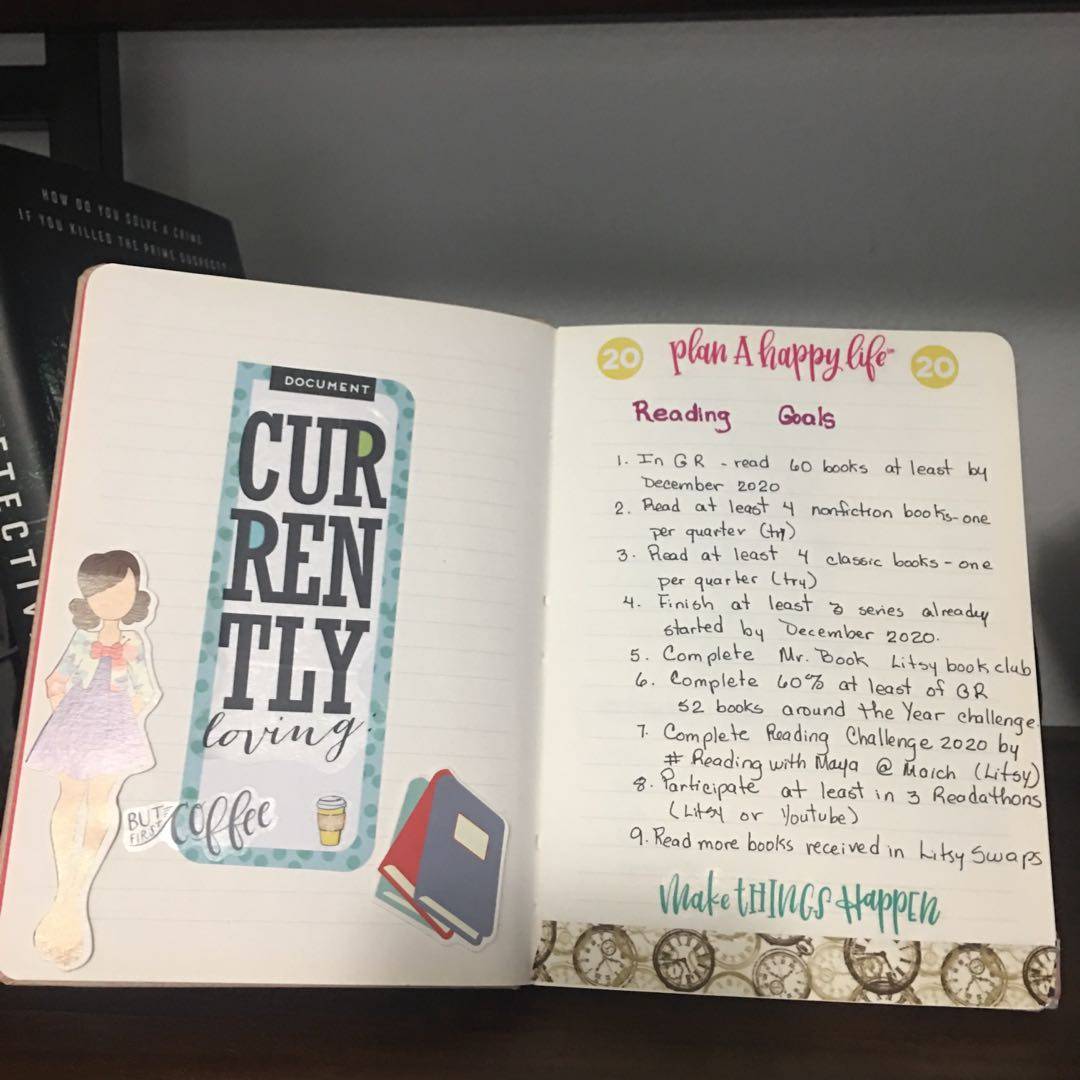 HOW DO YOU SOLVE A CRIME
IF YOU KILLED THE PRIME SUSPECT?
DOCUMENT
CUR
REN
TLY
loving:
BUT FIRST Coffee
20 plan A happy life™ 20
Reading Goals
1. In GR - read 60 books at least by
December 2020
2. Read at least 4 nonfiction books-one
per quarter (try)
3. Read at least 4 classic books - one
per quarter (try)
4. Finish at least 3 series already
started by December 2020.
5. Complete Mr. Book Litsy book club
6. Complete 60% at least of GR
52 books around the Year challenge.
7. Complete Reading Challenge 2020 by
# Reading with Maya @ Moich (Litsy)
8. Participate at least in 3 Readathons
(Litsy or Youtube)
9. Read more books received in Litsy Swaps
Make tHINGS HappEN